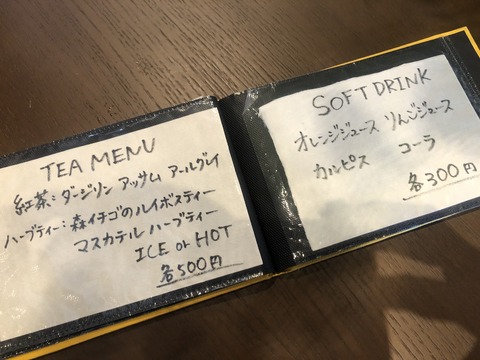 TEA MENU
紅茶:ダージリン アッサム アールグレイ
ハーブティー:森イチゴのルイボスティー
マスカテルハーブティー
ICE or HOT
各500円
SOFT DRINK
オレンジジュース りんごジュース
カルピス コーラ
各300円